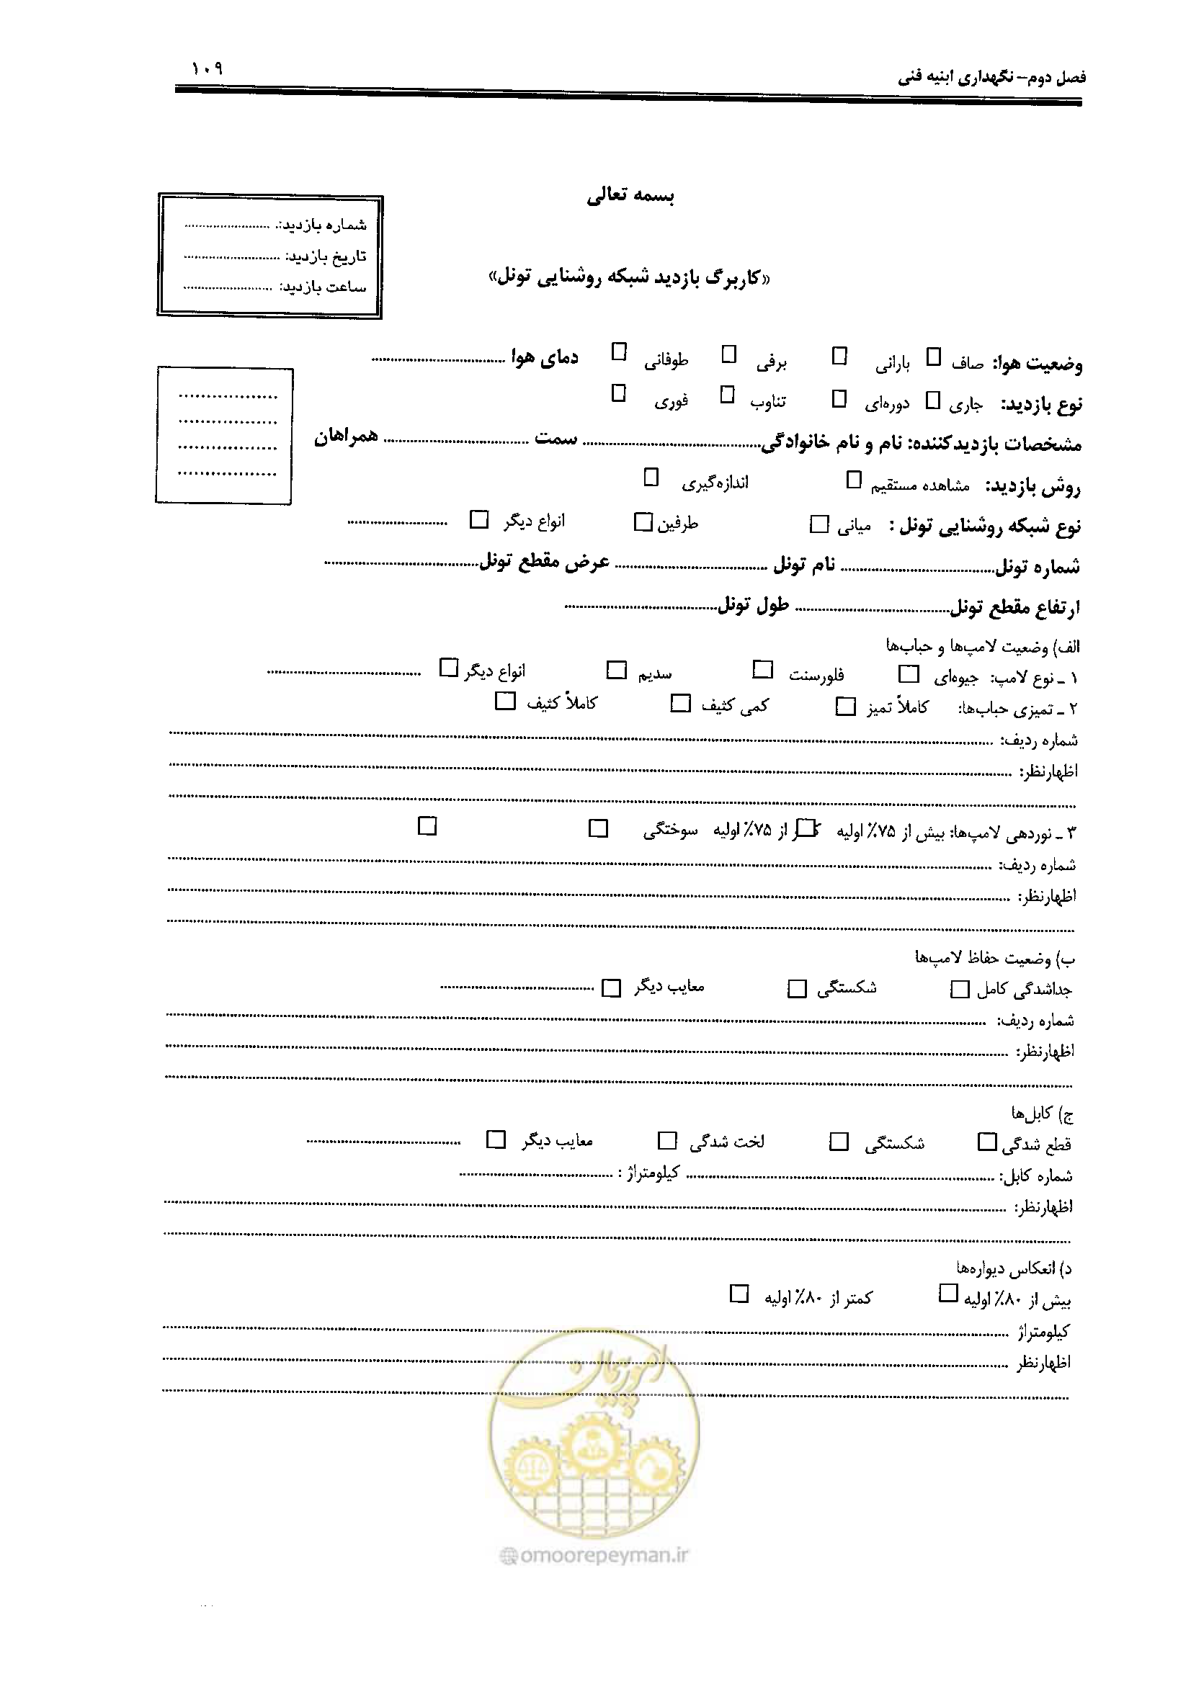 فصل دوم– نگهداری ابنیه فنی
۱۰۹
بسمه تعالی
شماره بازدید:. ........................
تاریخ بازدید: ..........................
ساعت بازدید: ........................
«کاربرگ بازدید شبکه روشنایی تونل»
وضعیت هوا: صاف □ بارانی □ برفی □ طوفانی □ دمای هوا ..................................
نوع بازدید: جاری □ دوره‌ای □ تناوب □ فوری □
مشخصات بازدیدکننده: نام و نام خانوادگی.............................................. سمت ..................................... همراهان
........................
........................
........................
........................
روش بازدید: مشاهده مستقیم □ اندازه‌گیری □
نوع شبکه روشنایی تونل : میانی □ طرفین □ انواع دیگر □ ..........................
شماره تونل....................................... نام تونل ....................................... عرض مقطع تونل.......................................
ارتفاع مقطع تونل....................................... طول تونل.......................................
الف) وضعیت لامپ‌ها و حباب‌ها
۱ ـ نوع لامپ: جیوه‌ای □ فلورسنت □ سدیم □ انواع دیگر □ .......................................
۲ ـ تمیزی حباب‌ها: کاملاً تمیز □ کمی کثیف □ کاملاً کثیف □
شماره ردیف: ................................................................................
اظهارنظر: ................................................................................
................................................................................
۳ ـ نوردهی لامپ‌ها: بیش از ۷۵٪ اولیه □ کمتر از ۷۵٪ اولیه سوختگی □ □
شماره ردیف: ................................................................................
اظهارنظر: ................................................................................
................................................................................
ب) وضعیت حفاظ لامپ‌ها
جداشدگی کامل □ شکستگی □ معایب دیگر □ .......................................
شماره ردیف: ................................................................................
اظهارنظر: ................................................................................
................................................................................
ج) کابل‌ها
قطع شدگی □ شکستگی □ لخت شدگی □ معایب دیگر □ .......................................
شماره کابل: ................................................................................ کیلومتراژ : .......................................
اظهارنظر: ................................................................................
................................................................................
د) انعکاس دیواره‌ها
بیش از ۸۰٪ اولیه □ کمتر از ۸۰٪ اولیه □
کیلومتراژ ................................................................................
اظهارنظر ................................................................................
................................................................................
امور پیمان
@omoorepeyman.ir